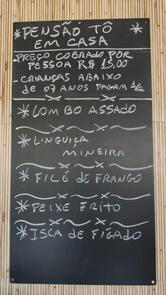 *PENSÃO TÔ
EM CASA
-PREÇO COBRADO POR
PESSOA R$ 15,00
-CRIANÇAS ABAIXO
DE 07 ANOS PAGAM 1/2
*LOMBO ASSADO
*LINGUIÇA
MINEIRA
*FILÉ DE FRANGO
*PEIXE FRITO
*ISCA DE FÍGADO